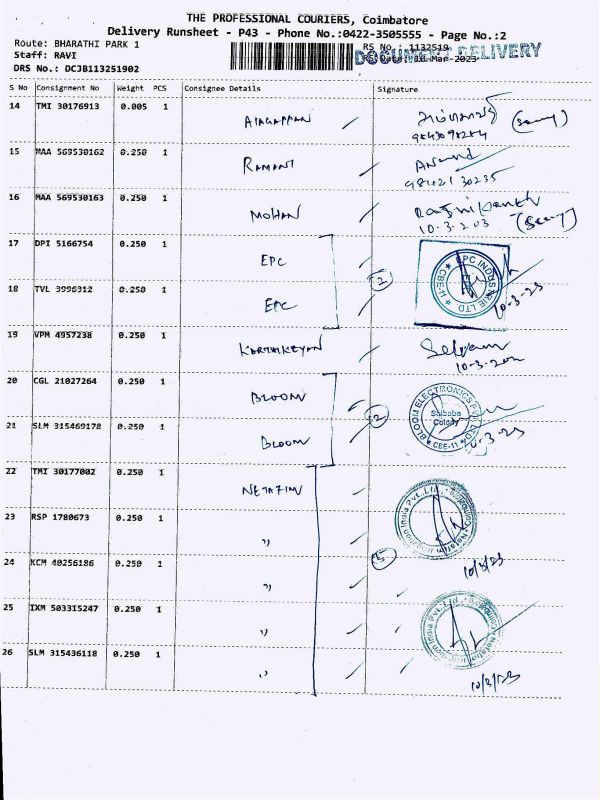 THE PROFESSIONAL COURIERS, Coimbatore
Delivery Runsheet - P43 - Phone No.:0422-3505555 - Page No.:2
Route: BHARATHI PARK 1
RS No.: 1132519
DOCUMENT DELIVERY
Staff: RAVI
RS Date: 10-Mar-2023
DRS No.: DCJB113251902
S No Consignment No Weight PCS Consignee Details Signature
14 TMI 30176913 0.005 1 ALAGAPPAN
15 MAA 569530162 0.250 1 RAMANI Anand
16 MAA 569530163 0.250 1 MOHAN Rajnikanth
10-3-203
17 DPI 5166754 0.250 1 EPC
2
EPC INDUSTRIE LTD CBE-11
10-3-23
18 TVL 3996312 0.250 1 EPC
19 VPM 4957238 0.250 1 KARTHIKEYAN Selvam
20 CGL 21027264 0.250 1 BLOOM
2
BLOOM ELECTRONICS PVT LTD
Saibaba
Colony
CBE-11
21 SLM 315469178 0.250 1 BLOOM
22 TMI 30177002 0.250 1 NETAFIM
Netafim Irrigation India Pvt. Ltd., Coimbatore
23 RSP 1780673 0.250 1 "
5
10/3/23
24 KCM 40256186 0.250 1 "
25 IXM 503315247 0.250 1 "
26 SLM 315436118 0.250 1 "
10/3/23